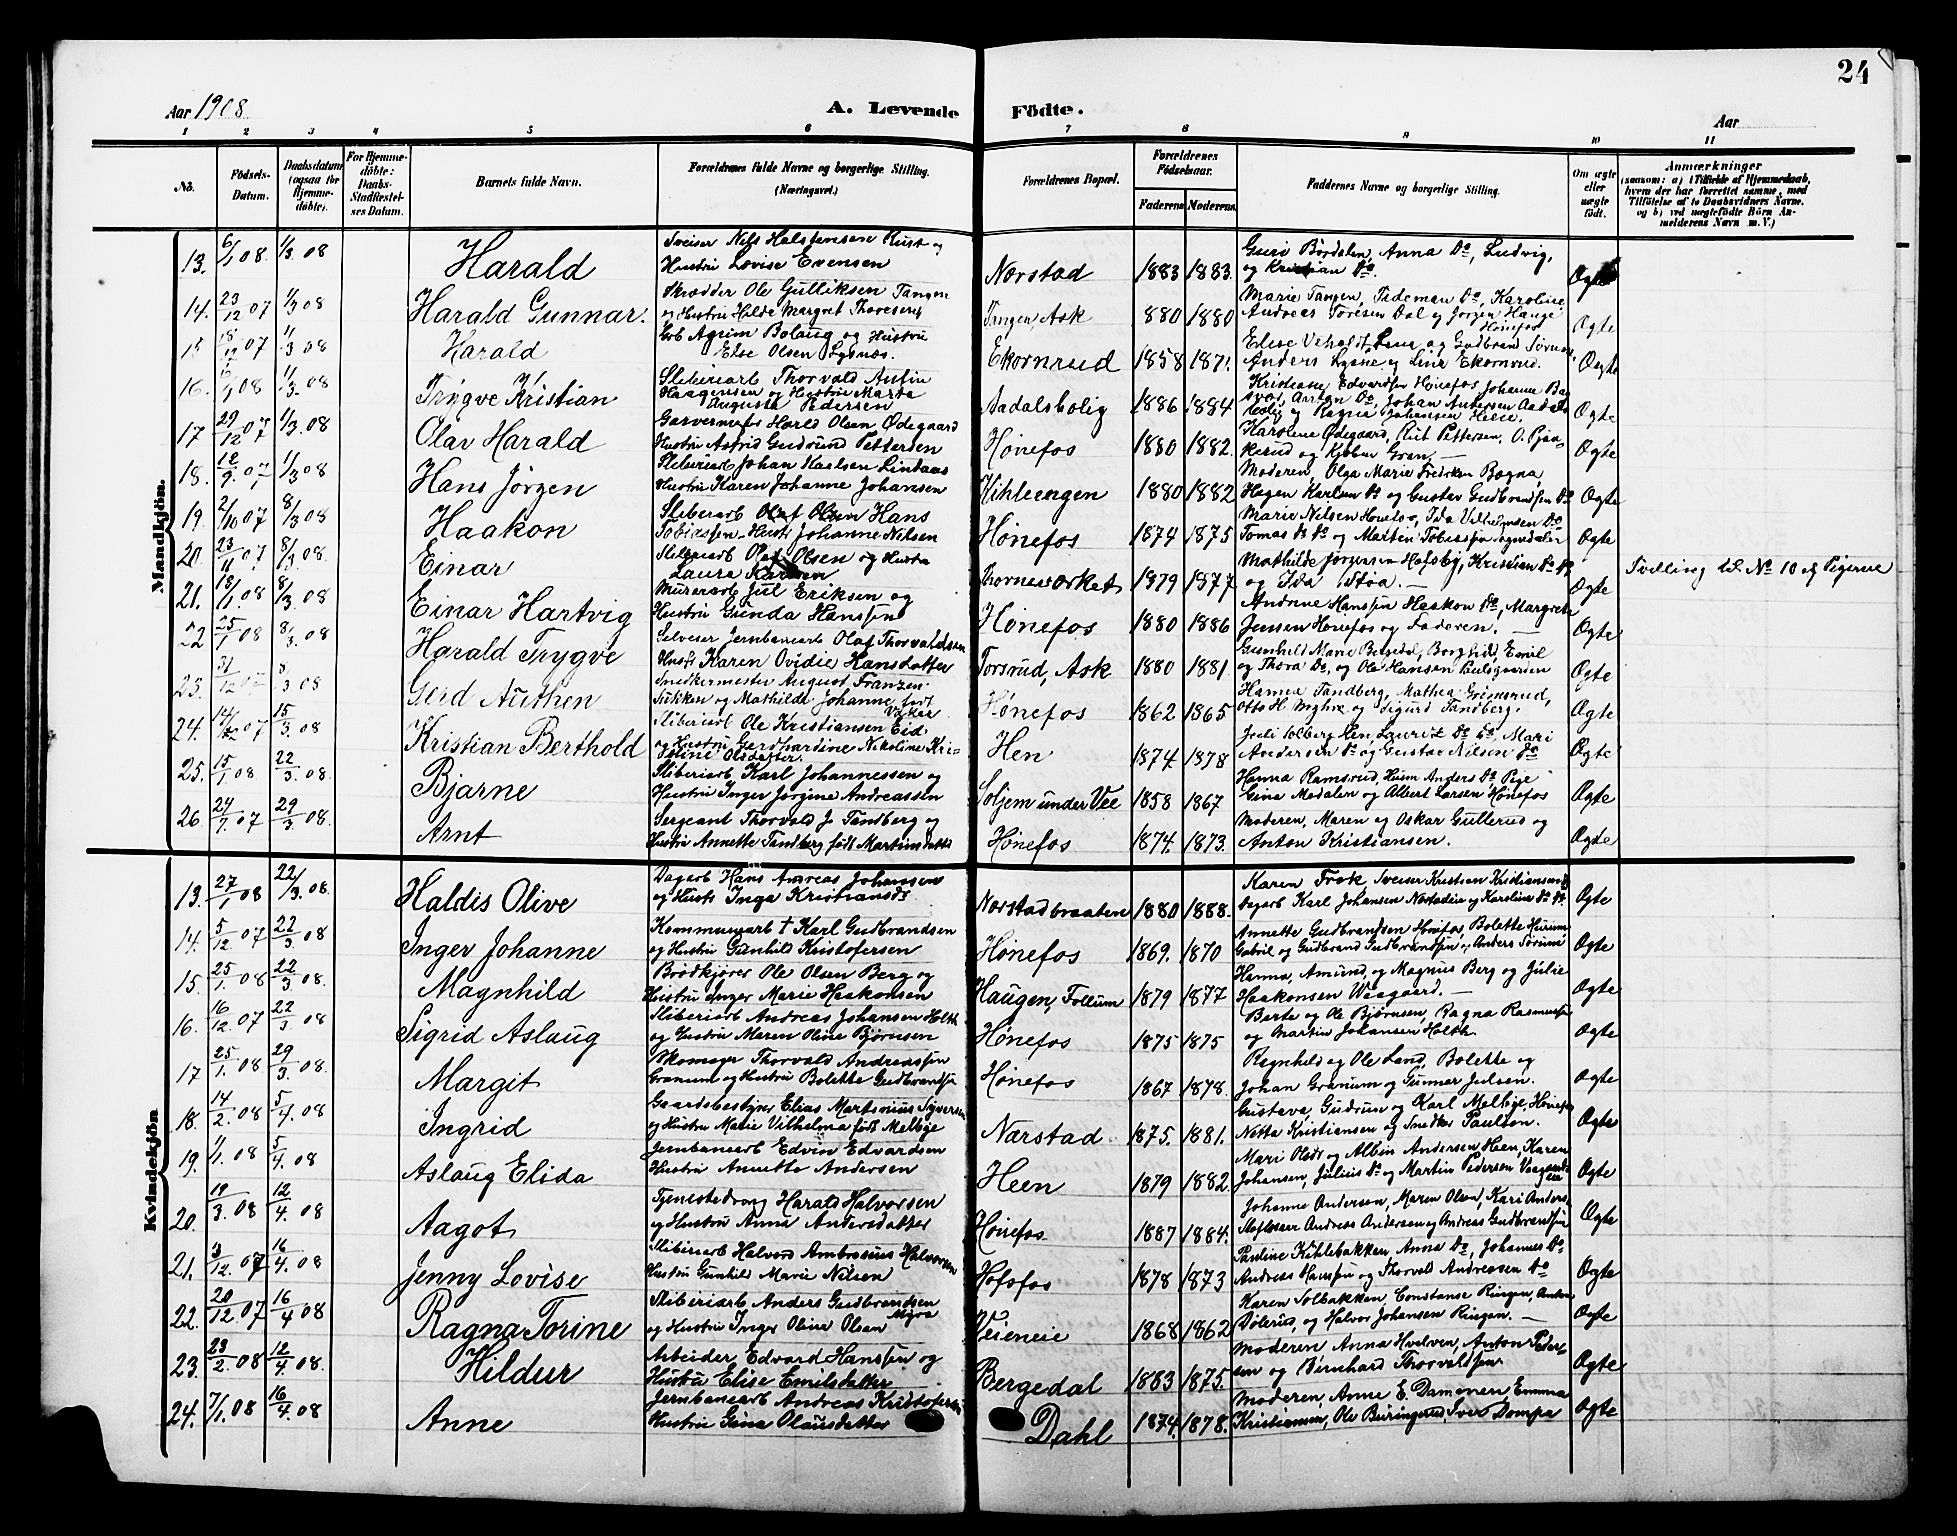 24
Aar 1908.
A. Levende Födte.
Aar
1 2 3 4 5 6 7 8 9 10 11
No.
Födsels-Datum.
Daabsdatum (ogsaa for Hjemme-döbte).
For Hjemme-döbte: Daabs-Stadfæstel-ses Datum.
Barnets fulde Navn.
Forældrenes fulde Navne og borgerlige Stilling. (Næringsvei.)
Forældrenes Bopæl.
Forældrenes Födselsaar.
Faderens. Moderens.
Faddernes Navne og borgerlige Stilling.
Om ægte eller uægte født.
Anmærkninger
(saasom: a) i Tilfælde af Hjemmedaab, hvem der har forrettet samme, med Tilföielse af to Daabsvidners Navne. og b) ved uægtefödte Börn An-melderens Navn m. V.)
Mandkjön.
13. 6/1 08. 1/3 08 Harald Sveiser Nils Halstensen Rust og Hustru Lovise Evensen Norstad 1883 1883. Guri Bordalen, Anna Do, Ludvig, og Kristian Do. Ægte
14. 23/12 07 1/3 08 Harald Gunnar. Skrædder Ole Gulliksen Tangen og Hustru Hilde Margret Thoresens Tangen, Ask 880 1880 Marie Tangen, Tideman Do, Karoline Andreas Toresen Dal og Jørgen Hauge Hønefos Ægte
15 18/12 07 1/3 08 Harald Elise Olsen Lysnæs. Ekornrud 1858 1871. Anders Lysne og Lina Ekornrud. Ægte
16. 08 1/3 08 Trygve Kristian Sliberiarb Thorvald Antin Haagensen og Hustru Marta Augusta Pedersen Aadalsbolig 1886 1884 Kristiane Edvardsen Hønefos Johanne Johan Andersen Ragna Johansen Ægte
17 29/12 07 1/3 08 Olav Harald Garvermester Harald Olsen Ødegaard Hustru Astrid Gudrund Pettersen Hønefos 1880 1882. Karoline Ødegaard, Rut Pettersen, og Kjøbm Gran, — Ægte
18. 12/9 07 1/3 08 Hans Jørgen Sliberiarb Johan Karlsen Lindaas Hustru Karen Johanne Johansen Kihleengen 1880 1882 Moderen, Olga Marie Fredriksen Bogna, Hagen Karlsen Do og Gustav Gudbrandsen Do Ægte
19. 2/10 07 8/3 08 Haakon Sliberiarb Hans Tobiassen Hustr Johanne Nilsen Hønefos 1874 1875 Marie Nilsen Hønefos, Ida Vilhelmsen Do Tomas Do Do og Martin Tobiassen Sognedalen Ægte
20. 23/11 07 8/3 08. Einar Sliberiarb Olaf Olsen og Hustru Laura Karlsen Thornesvorket 1879 1877 Mathilde Jørgensen Hofsby, Kristian Do Do og Ida Moa. — Ægte Tvilling til No 10 af Pigerne
21. 18/1 08 8/3 08 Einar Hartvig Murerarb Jul Eriksen og Hustru Gunda Hanssen Hønefos 1880 1886 Andrine Hanssen Haakon Do, Margrete Jensen Hønefos og Faderen. — Ægte
22 25/1 08 8/3 08 Harald Trygve Selveier Jernbanearb Olaf Thorvaldsen Hustr Karen Ovidie Hansdatter Torsrud, Ask 1880 1881. Gunhild Marie Borghild, Emil og Thora Do, og Ole Hansen Paulsgaarden Ægte
23. 31/12 07 8/3 08 Gerd Authen Snedkermester August Franzen og Mathilde Johanne født Hønefos 1862 1865 Hanna Tandberg, Mathea Grimsrud, Otto H. Myhre og Sigurd Tandberg. Ægte
24. 14/12 07 15/3 08 Kristian Berthold Sliberiarb Ole Kristiansen Eid og Hustru Gerdhardine Nikoline Kri-stine Olsdatter Hen 1874. 1878 Juli Solberg Hen, Lauritz Do Do, Mari Andersen Do og Gustav Nilsen Do Ægte
25. 15/1 08 22/3 08. Bjarne Sliberiarb Karl Johannessen og Hustru Inger Jørgine Andreassen Soljem under Vee 1858 1867 Hanna Ramsrud, Anders Do Gina Modalen og Albert Larsen Hønefos Ægte
26. 24/7 07 29/3 08. Arnt Sergeant Thorvald J Tandberg og Hustru Annette Tandberg født Martinsdatter Hønefos 1874. 1873. Moderen, Maren og Oskar Gullerud og Anton Kristiansen. Ægte
Kvindekjön
13. 27/1 08 22/3 08. Haldis Olive Dagarb Hans Andreas Johansen og Hustr Inga Kristiansdr Norstadbraaten 1880 1888. Karen Frok, Sveiser Kristian Kristiansen Dagarb Karl Johansen Norstadeie og Karoline Do Do Ægte
14. 5/12 07 22/3 08 Inger Johanne Kommunearb † Karl Gudbrandsen og Hustru Gunhild Kristofersen Hønefos 1869. 1870 Annette Gudbrandsen Hønefos, Bolette Hurum Gabriel og Gudbrand Gudbrandsen og Anders Sørum Ægte
15. 25/1 08 22/3 08. Magnhild Brødkjører Ole Olsen Berg og Hustru Inger Marie Haakonsen Haugen, Follum 1879 1877 Hanna, Amund, og Magnus Berg og Julie Haakonsen Waagaard. — Ægte
16. 16/12 07 22/3 08 Sigrid Aslaug Sliberiarb Andreas Johansen Holth og Hustru Maren Oline Bjørnsen Hønefos 1875 1875 Berte og Ole Bjørnsen, Ragna Rasmussen og Martin Johansen Holth. Ægte
17 25/1 08 29/3 08. Margit Skomager Thorvald Andreassen Granum og Hustru Bolette Gudbrandsen Hønefos 1867 1878. Ragnhild og Ole Land, Bolette og Johan Granum og Gunnar Julsen. Ægte
18. 14/2 08 5/4 08 Ingrid Gaardsbestyrer Elias Martinius Syversen og Hustru Marie Vilhelma født Melbye Norstad 1875. 1881. Gustava, Gudrun og Karl Melbye, Hønefos Netta Kristiansen og Snedker Paulson. Ægte
19. 1/1 08 5/4 08 Aslaug Elida Jernbanearb Edvin Edvardsen Hustru Annette Andersen Heen 1879 1882 Mari Olsdr og Albin Andersen Heen, Karen Johansen, Julius Do og Martin Pedersen Ægte
20. 19/3 08 12/4 08 Aagot Tjenestedreng Harald Halvorsen og Hustru Anna Andersdatter Hønefos 1887 1884. Johanne Andersen, Maren Olsen, Kari Anders Andreas Andersen og Andreas Gudbrandsen Ægte
21. 3/12 07 16/4 08 Jenny Lovise Sliberiarb Halvord Ambrosius Halvorsen Hustru Gunhild Marie Nilsen Hofsfos 1878 1873 Pauline Kihlebakken, Anna Do, Johannes Do Andreas Hanssen og Thorvald Andreassen Do Ægte
22. 20/12 07 16/4 08 Ragna Torine Sliberiarb Anders Gudbrandsen Myra og Hustru Inger Oline Olsen Veieneie 1868 1862 Karen Solbakken, Constanse Ringen, Anton og Halvor Johansen Ringen. — Ægte
23. 23/2 08 12/4 08. Hildur Arbeider Edvard Hanssen og Hustru Elise Emilsdatter Bergedal 1883 1875. Moderen Anna Hvalven, Anton Peder-sen og Bernhard Thorvaldsen Ægte
24. 7/1 08 16/4 08 Anne Jernbanearb Andreas Kristofersen Hustru Gina Olausdatter Dahl 1874. 1878. Moderen, Anne E. Damonen Emma Kristiansen, Ole Buringsrud Iver Dompa Ægte